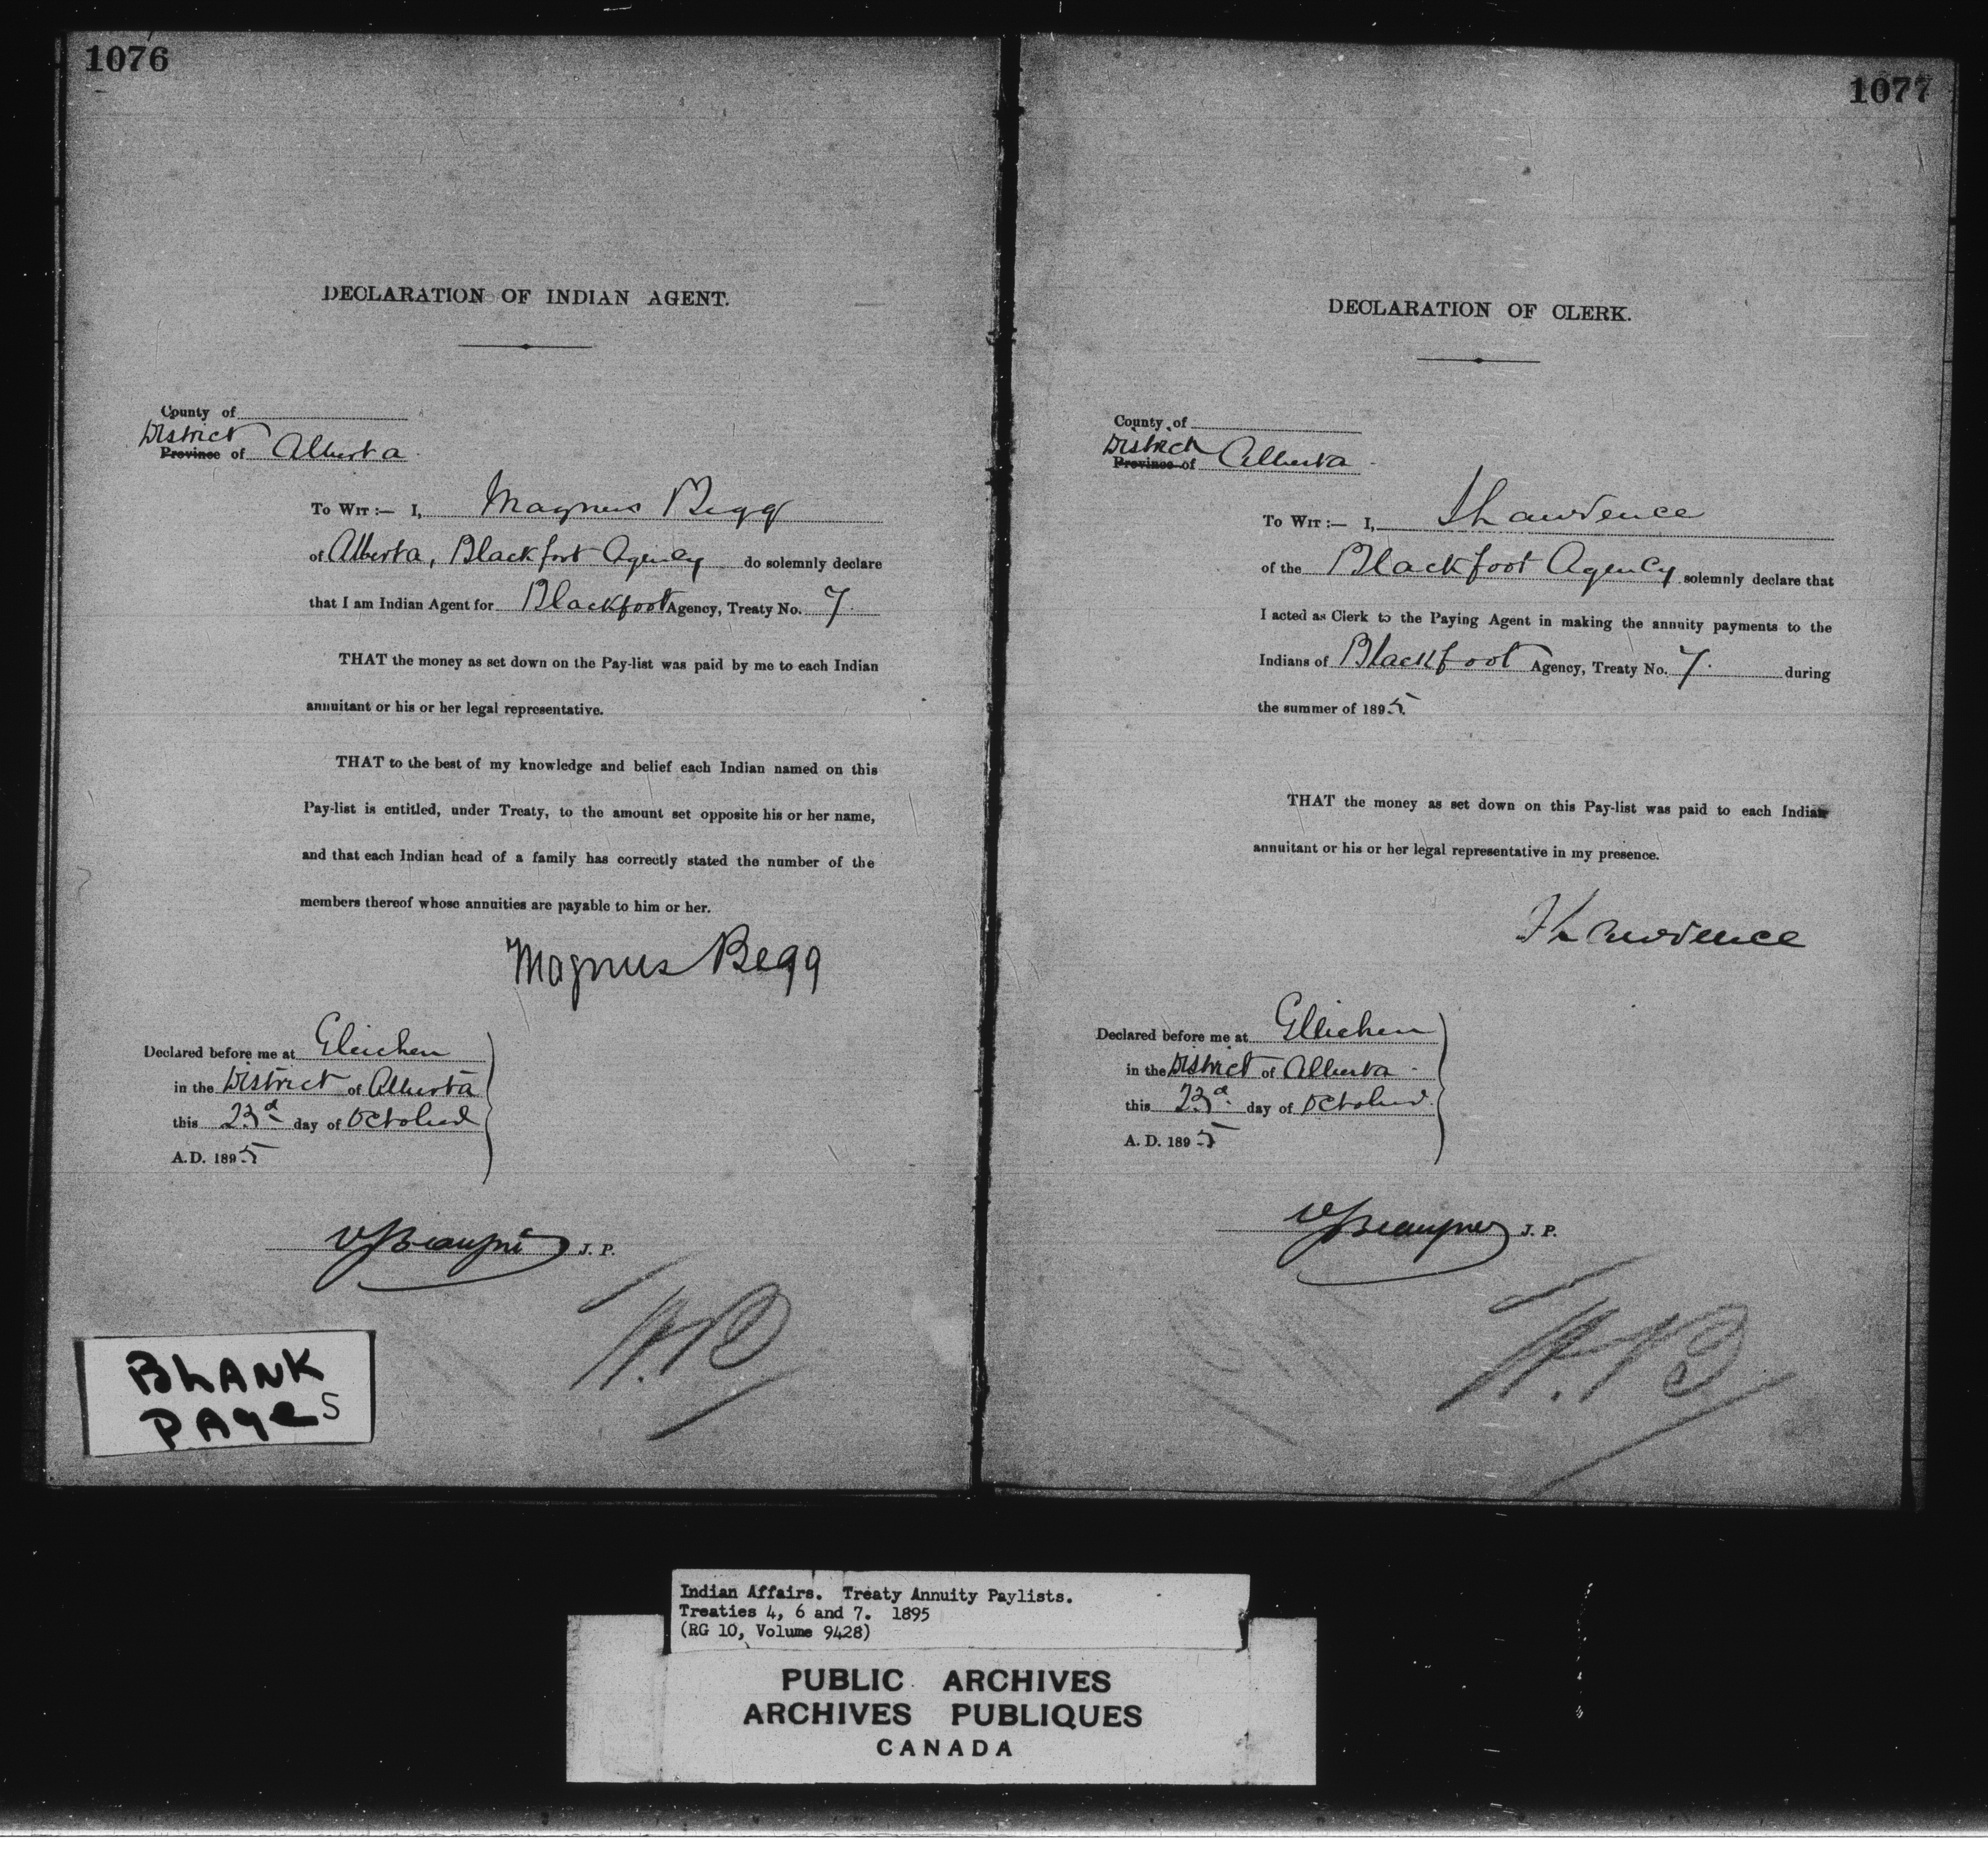 1076
DECLARATION OF INDIAN AGENT.
County of
District
Province of Alberta
To Wit :— I, Magnus Begg
of Alberta, Blackfoot Agency do solemnly declare
that I am Indian Agent for Blackfoot Agency, Treaty No. 7.
THAT the money as set down on the Pay-list was paid by me to each Indian
annuitant or his or her legal representative.
THAT to the best of my knowledge and belief each Indian named on this
Pay-list is entitled, under Treaty, to the amount set opposite his or her name,
and that each Indian head of a family has correctly stated the number of the
members thereof whose annuities are payable to him or her.
Magnus Begg
Declared before me at Gleichen
in the District of Alberta
this 23d day of October
A.D. 1895
J. P.
BLANK
PAGES
1077
DECLARATION OF CLERK.
County of
District
Province of Alberta
To Wit :— I, Lawrence
of the Blackfoot Agency solemnly declare that
I acted as Clerk to the Paying Agent in making the annuity payments to the
Indians of Blackfoot Agency, Treaty No. 7. during
the summer of 1895.
THAT the money as set down on this Pay-list was paid to each Indian
annuitant or his or her legal representative in my presence.
Lawrence
Declared before me at Gleichen
in the District of Alberta
this 23d day of October
A. D. 1895
J. P.
Indian Affairs. Treaty Annuity Paylists.
Treaties 4, 6 and 7. 1895
(RG 10, Volume 9428)
PUBLIC ARCHIVES
ARCHIVES PUBLIQUES
CANADA